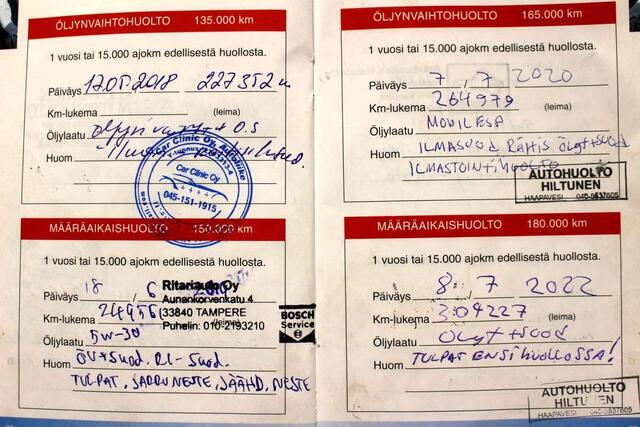 ÖLJYNVAIHTOHUOLTO 135.000 km
1 vuosi tai 15.000 ajokm edellisestä huollosta.
Päiväys 17.05.2018 227352
Km-lukema (leima)
Öljylaatu
Huom
Car Clinic Oy
045-151-1915
MÄÄRÄAIKAISHUOLTO 150.000 km
1 vuosi tai 15.000 ajokm edellisestä huollosta.
Päiväys 18 / 6
Ritariauto Oy
Aunankorvenkatu 4
Km-lukema 33840 TAMPERE
Puhelin: 010-2193210
Öljylaatu 5W-30 (leima)
BOSCH
Service
Huom ÖV+Suod. RI-Suod.
TULPAT, JARRUNESTE, JÄÄHD.NESTE
ÖLJYNVAIHTOHUOLTO 165.000 km
1 vuosi tai 15.000 ajokm edellisestä huollosta.
Päiväys 7 / 7 2020
Km-lukema 264979 (leima)
Öljylaatu MOBIL ESP
Huom ILMASUOD, RAITIS, ÖLJYT+SUOD
ILMASTOINTIHUOLTO
AUTOHUOLTO
HILTUNEN
HAAPAVESI 040-5837605
MÄÄRÄAIKAISHUOLTO 180.000 km
1 vuosi tai 15.000 ajokm edellisestä huollosta.
Päiväys 8 / 7 2022
Km-lukema 304227 (leima)
Öljylaatu ÖLJYT+SUOD
Huom TULPAT ENSI HUOLLOSSA!
AUTOHUOLTO
HILTUNEN
HAAPAVESI 040-5837605